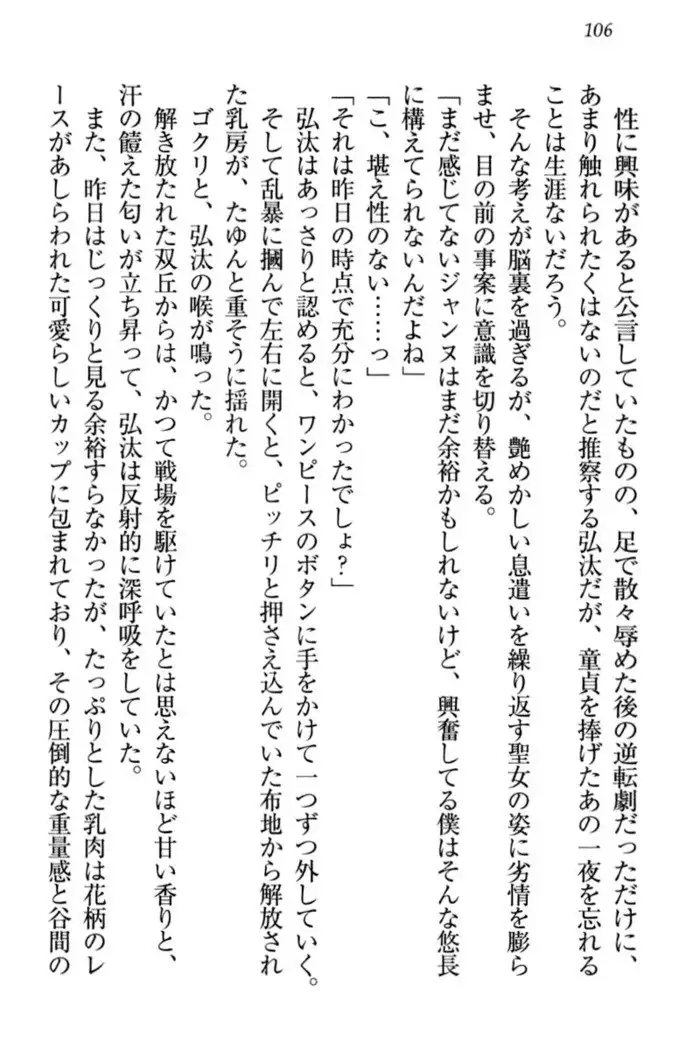 106
性に興味があると公言していたものの、足で散々辱めた後の逆転劇だっただけに、
あまり触れられたくはないのだと推察する弘汰だが、童貞を捧げたあの一夜を忘れる
ことは生涯ないだろう。
そんな考えが脳裏を過ぎるが、艶めかしい息遣いを繰り返す聖女の姿に劣情を膨ら
ませ、目の前の事案に意識を切り替える。
「まだ感じてないジャンヌはまだ余裕かもしれないけど、興奮してる僕はそんな悠長
に構えてられないんだよね」
「こ、堪え性のない……っ」
「それは昨日の時点で充分にわかったでしょ？」
弘汰はあっさりと認めると、ワンピースのボタンに手をかけて一つずつ外していく。
そして乱暴に摑んで左右に開くと、ピッチリと押さえ込んでいた布地から解放され
た乳房が、たゆんと重そうに揺れた。
ゴクリと、弘汰の喉が鳴った。
解き放たれた双丘からは、かつて戦場を駆けていたとは思えないほど甘い香りと、
汗の饐えた匂いが立ち昇って、弘汰は反射的に深呼吸をしていた。
また、昨日はじっくりと見る余裕すらなかったが、たっぷりとした乳肉は花柄のレ
ースがあしらわれた可愛らしいカップに包まれており、その圧倒的な重量感と谷間の